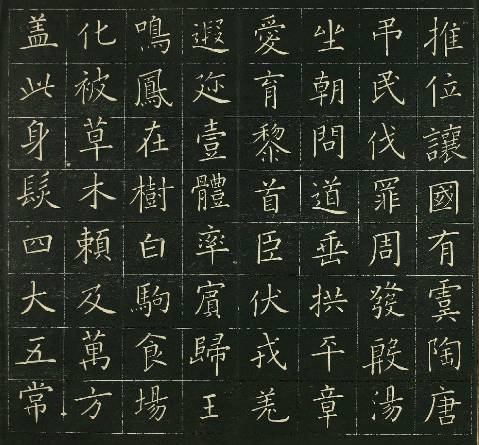 推位讓國有虞陶唐
弔民伐罪周發殷湯
坐朝問道垂拱平章
愛育黎首臣伏戎羌
遐迩壹體率賓歸王
鳴鳳在樹白駒食場
化被草木賴及萬方
蓋此身髮四大五常